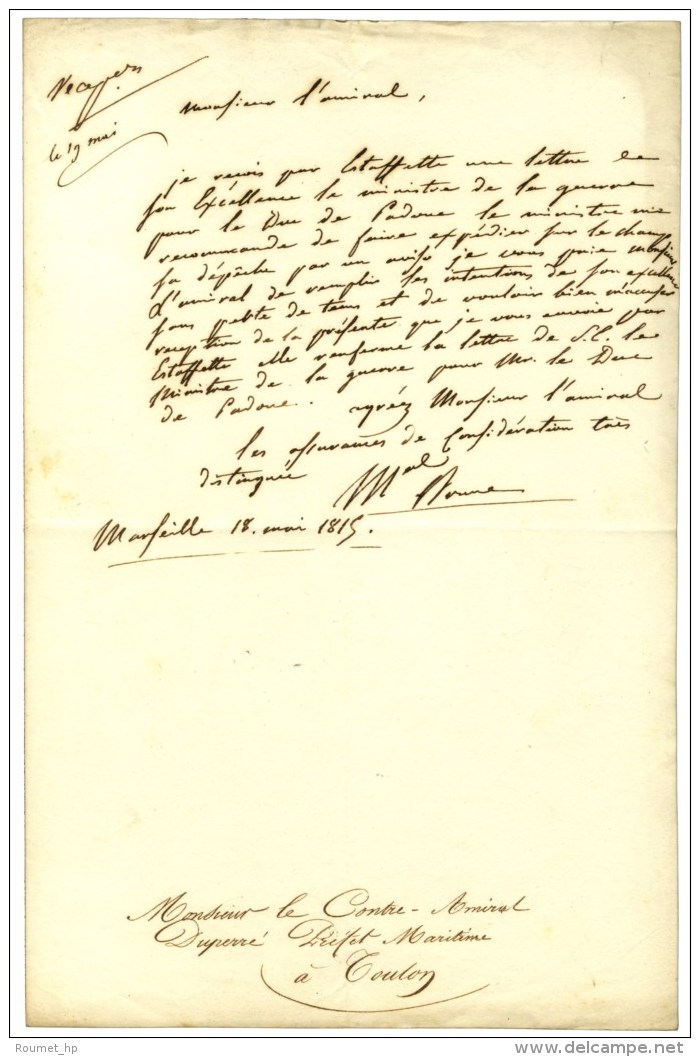 le 19 mai
Monsieur l'amiral,
je reçois par Estaffette une lettre de
son Excéllence le ministre de la guerre
pour le Duc de Padoue le ministre me
recommande de faire expédier sur le champ
sa dépêche par un aviso je vous prie monsieur
L'amiral de remplir les intentions de son excellence
sans perte de tems et de vouloir bien m'accuser
reception de la présente que je vous envoie par
Estaffette elle renferme la lettre de S.E. le
Ministre de la guerre pour Mr. le Duc
de Padoue. agréez Monsieur l'amiral
les assurances de Considération très
distinguée
Mal Brune
Marseille 18. mai 1815.
Monsieur le Contre-Amiral
Duperré Préfet Maritime
à Toulon
Roumet_hp
delcampe.net